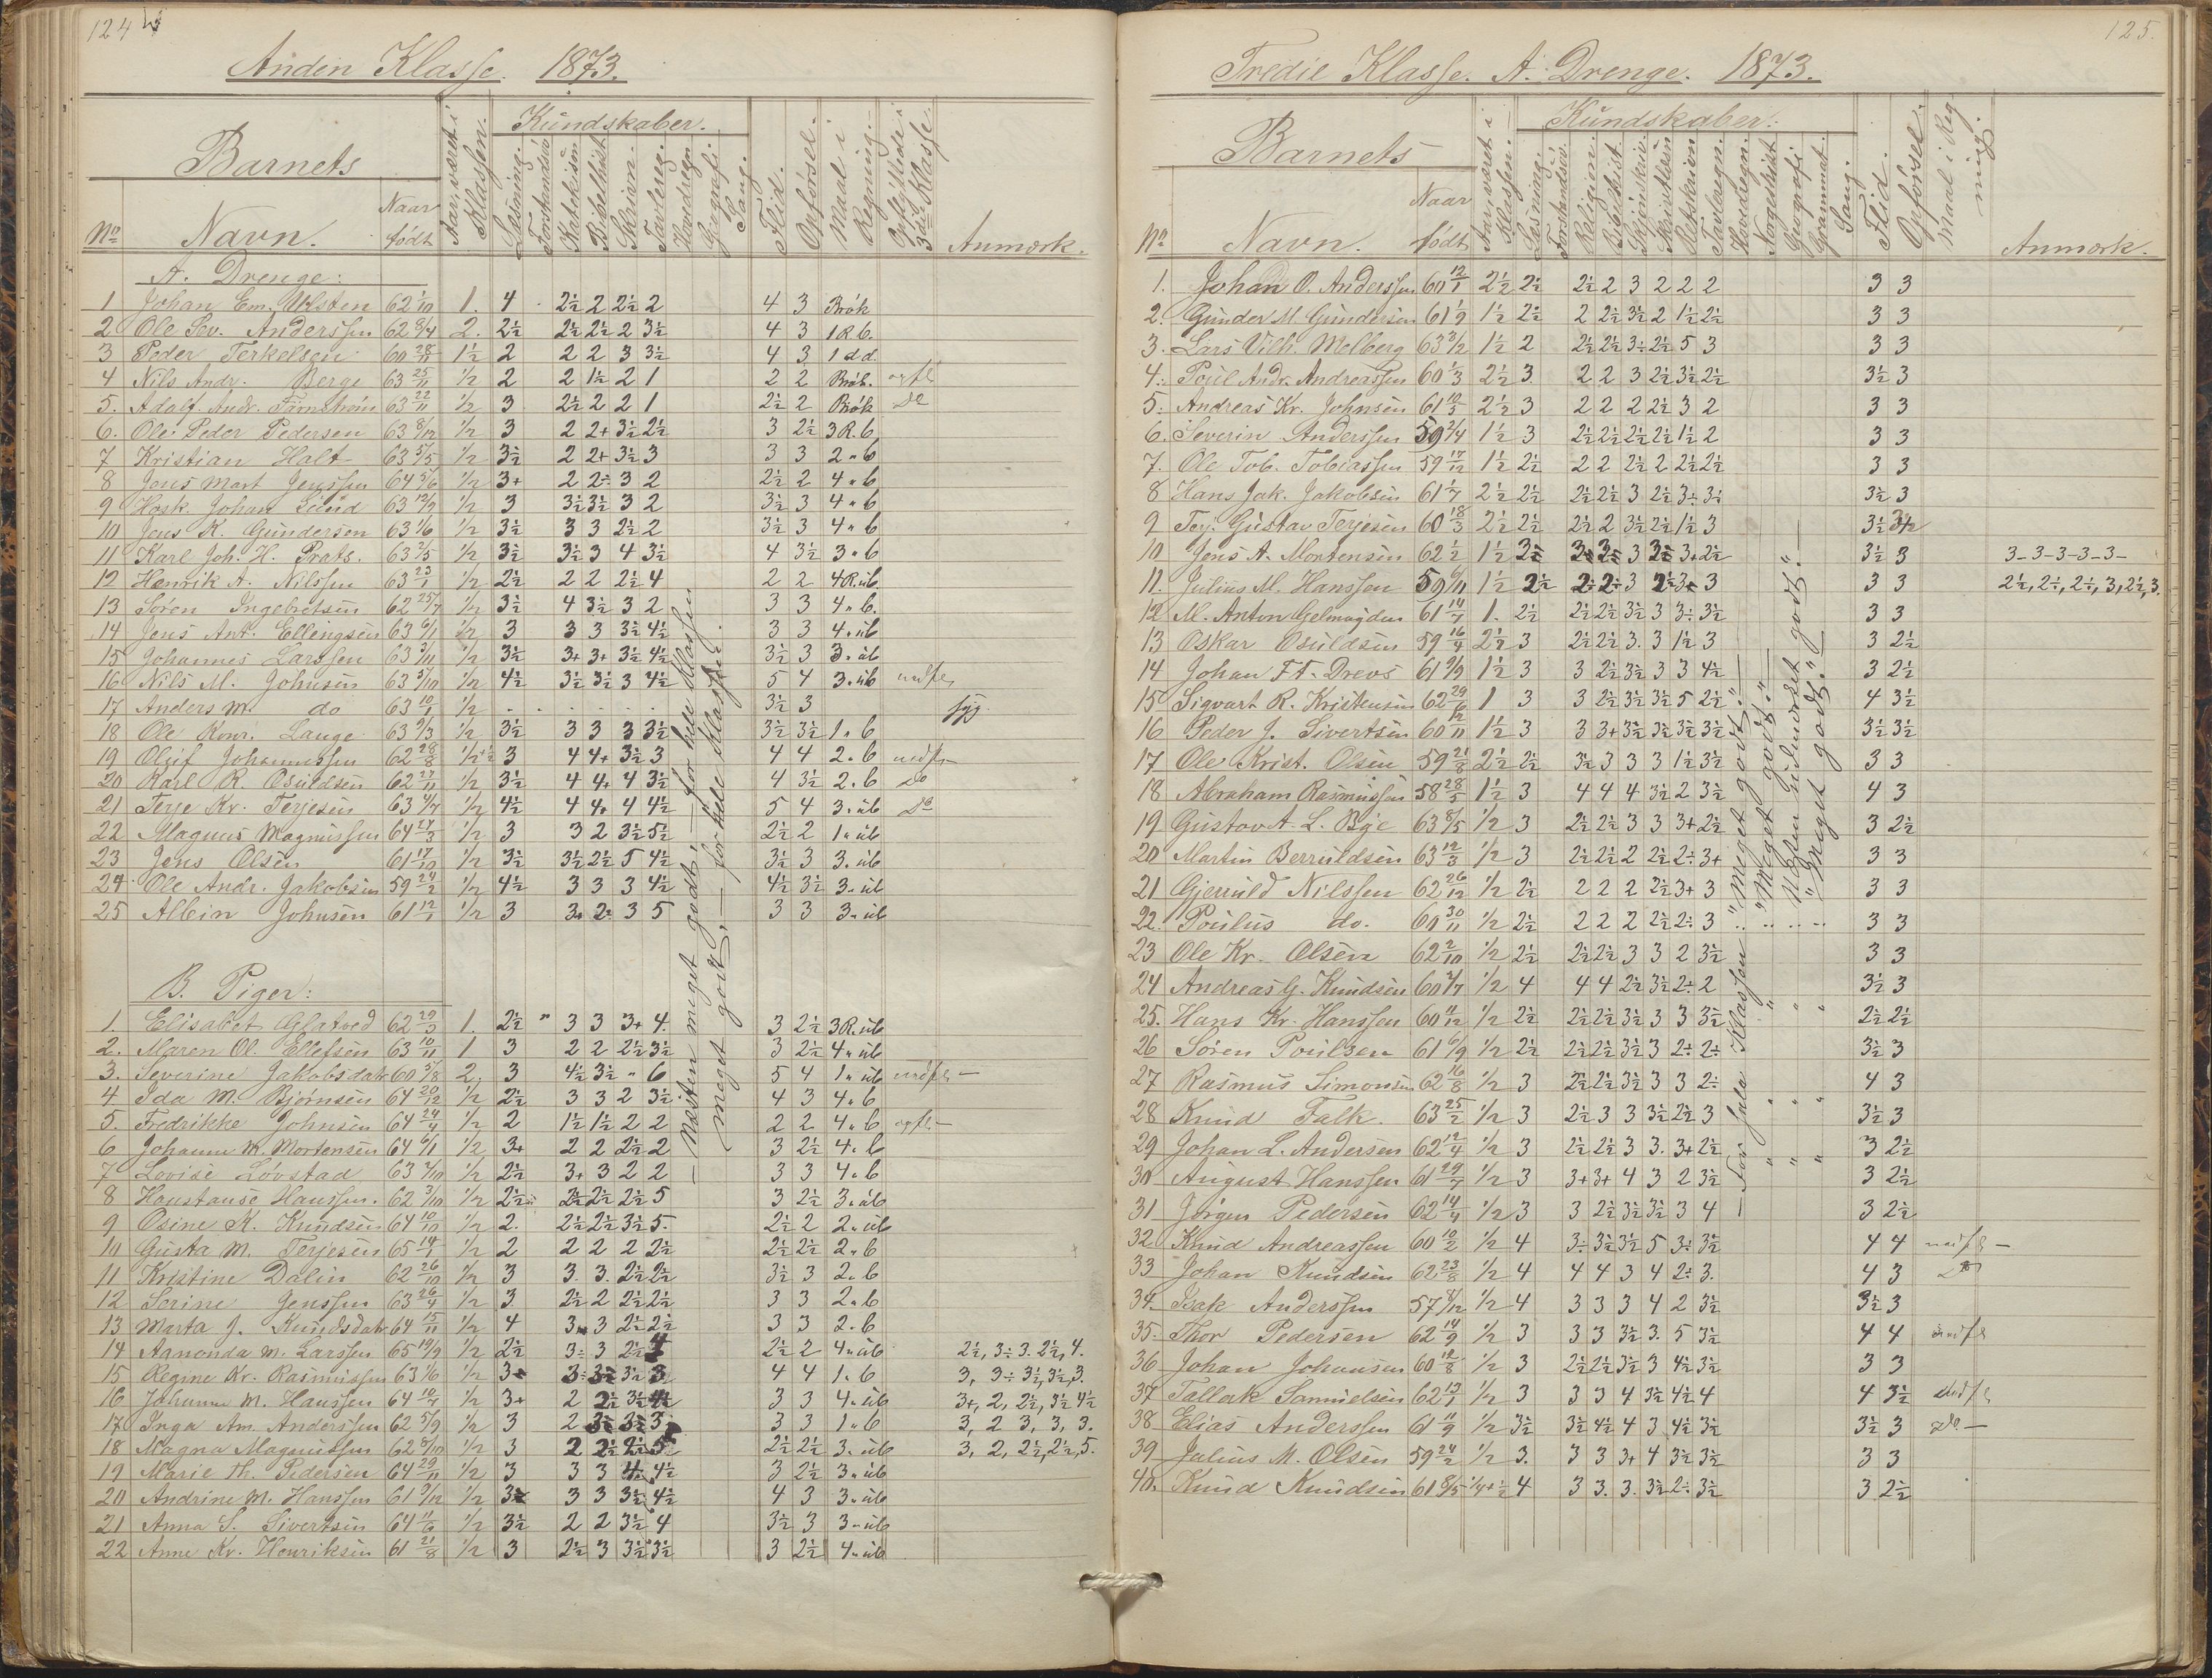 124
Anden Klasse. 1873.
Barnets
Aar, været i Klassen.
Kundskaber.
Flid.
Opførsel.
Maal i Regning.
3die Klasse.
Anmærk.
No
Navn.
Naar født
Læsning.
Bibelhist.
Skrivn.
Tavlereg.
Hovedregn.
Geografi.
Sang.
A. Drenge:
1 Johan Em. 62 1/10 1. 4 2½ 2 2½ 2 4 3 Brøk
2 Ole Sev. Anderssen 62 8/4 2. 2½ 2½ 2½ 2 3½ 4 3 1 R b.
3 Peder Terkelsen 60 28/11 1½ 2 2 2 3 3½ 4 3 1 d d.
4 Nils Andr. Berge 63 25/11 ½ 2 2 1½ 2 1 2 2 Brøk. opfl
5. Adolf. Andr. 63 22/11 ½ 3 2½ 2 2 1 2½ 2 Brøk Do
6. Ole Peder Pedersen 63 8/12 ½ 3 2 2+ 3½ 2½ 3 2½ 3 R. b
7 Kristian Holt 63 5/5 ½ 3½ 2 2+ 3½ 3 3 3 2 " b
8 Jens Mart Jenssen 64 5/6 ½ 3+ 2 2÷ 3 2 2½ 2 4 " b
9 Hask. Johan Lund 63 13/9 ½ 3 3½ 3½ 3 2 3½ 3 4 " b
10 Jens K. Gundersen 63 1/6 ½ 3½ 3 3 2½ 2 3½ 3 4 " b
11 Karl Joh. H. Prats. 63 2/5 ½ 3½ 3½ 3 4 3½ 4 3½ 3 " b
12 Henrik A. Nilssen 63 23/1 ½ 2½ 2 2 2½ 4 2 2 4 R. ub
13 Søren Ingebretsen 62 25/7 ½ 3½ 4 3½ 3 2 3 3 4 " b.
14 Jens Ant. Ellingsen 63 6/1 ½ 3 3 3 3½ 4½ 3 3 4 " ub
15 Johannes Larssen 63 3/11 ½ 3½ 3+ 3+ 3½ 4½ 3½ 3 3 " ub
16 Nils M. Johnsen 63 5/10 ½ 4½ 3½ 3½ 3 4½ 5 4 3 " ub nedfl
17 Anders M. do 63 10/1 ½ 3½ 3 syg.
18 Ole Konr. Lange 63 9/3 ½ 3½ 3 3 3 3½ 3½ 3½ 1 " b
19 Oluf Johannessen 62 28/8 ½+½ 3 4 4+ 3½ 3 4 4 2 " b nedfl
20 Karl R. Osuldsen 62 27/11 ½ 3½ 4 4+ 4 3½ 4 3½ 2 " b Do
21 Terje Kr. Terjesen 63 9/7 ½ 4½ 4 4+ 4 4½ 5 4 3 " ub Do
22 Magnus Magnussen 64 24/3 ½ 3 3 2 3½ 5½ 2½ 2 1 " ub
23 Jens Olsen 61 17/10 ½ 3½ 3½ 2½ 5 4½ 3½ 3 3 " ub
24 Ole Andr. Jakobsen 59 24/2 ½ 4½ 3 3 3 4½ 4½ 3½ 3 " ub
25 Albin Johnsen 61 12/1 ½ 3 3+ 2÷ 3 5 3 3 3 " ub
— Næsten meget godt, — for hele Klassen
meget godt, — for hele Klassen.
B. Piger:
1. Elisabet Glatved 62 29/3 1. 2½ " 3 3 3+ 4. 3 2½ 3 R. ub
2. Maren Ol. Ellefsen 63 10/11 1 3 2 2 2½ 3½ 3 2½ 4 " ub
3. Severine Jakobsdatr 60 3/8 2. 3 4½ 3½ " 6 5 4 1 " ub nedfl —
4 Ida M. Bjørnsen 64 20/12 ½ 2½ 3 3 2 3½ 4 3 4 " b
5. Fredrikke Johnsen 64 24/4 ½ 2 1½ 1½ 2 2 2 2 4 " b opfl. —
6 Johanne M. Mortensen 64 6/1 ½ 3+ 2 2 2½ 2 3 2½ 4 " b
7 Lovise Løvstad 63 4/10 ½ 2½ 3+ 3 2 2 3 3 4 " b
8 Hanssen. 62 3/10 ½ 2½ 2½ 2½ 2½ 5 3 2½ 3 " ub
9 Osine K. Knudsen 64 10/10 ½ 2. 2½ 2½ 3½ 5. 2½ 2 2 " ub
10 Gusta M. Terjesen 65 14/1 ½ 2 2 2 2 2½ 2½ 2½ 2 " b
11 Kristine Dalin 62 26/10 ½ 3 3. 3. 2½ 2½ 3½ 3 2 " b
12 Serine Jenssen 63 26/4 ½ 3. 2½ 2 2½ 2½ 3 3 2 " b
13 Marta J. Knudsdatr 64 15/11 ½ 4 3 3 2½ 2½ 3 3 2 " b
14 Amonda M. Larssen 65 19/9 ½ 2½ 3÷ 3 2½ 4 2½ 2 4 " ub 2½, 3÷ 3. 2½, 4.
15 Regine Kr. Rasmussen 63 1/6 ½ 3÷ 3÷ 3½ 3½ 3 4 4 1 " b 3, 3÷ 3½, 3½, 3.
16 Johanne M. Hanssen 64 10/7 ½ 3+ 2 2½ 3½ 4½ 3 3 4 " ub 3+, 2, 2½, 3½ 4½
17 Inga Am. Anderssen 62 5/9 ½ 3 2 3 3 3 3 3 1 " b 3, 2 3, 3, 3.
18 Magna Magnussen 62 8/10 ½ 3 2 2½ 2½ 5 2½ 2½ 3 " ub 3, 2, 2½, 2½, 5.
19 Marie Th. Pedersen 64 29/11 ½ 3 3 3 4 4½ 3 2½ 3 " ub
20 Andrine M. Hanssen 61 9/12 ½ 3 3 3 3½ 4½ 4 3 3 " ub
21 Anna S. Sivertsen 64 11/6 ½ 3½ 2 2 3½ 4 3½ 3 3 " ub
22 Anne Kr. Henriksen 61 21/8 ½ 3 2½ 3 3½ 3½ 3 2½ 4 " ub
125.
Tredie Klasse. A. Drenge. 1873.
Barnets
Aar, været i Klassen.
Kundskaber:
Flid.
Opførsel.
Maal i Regning.
Anmærk.
No
Navn.
Naar født
Læsning.
Forstandsøv.
Religion.
Bibelhist.
Skjønskriv.
Retskrivn.
Tavleregn.
Hovedregn.
Norgeshist.
Geografi
Grammat.
Sang.
1. Johan O. Anderssen 60 12/1 2½ 2½ 2½ 2 3 2 2 2 3 3
2. Gunder M. Gundersen 61 1/9 1½ 2½ 2 2½ 3½ 2 1½ 2½ 3 3
3. Lars Vilh. Melberg 63 3/2 1½ 2 2½ 2½ 3÷ 2½ 5 3 3 3
4. Poul Andr. Andreassen 60 1/3 2½ 3. 2 2 3 2½ 3½ 2½ 3½ 3
5. Andreas Kr. Johnsen 61 10/5 2½ 3 2 2 2 2½ 3 2 3 3
6. Severin Anderssen 59 2/4 1½ 3 2½ 2½ 2½ 2½ 1½ 2 3 3
7. Ole Tob. Tobiassen 59 17/12 1½ 2½ 2 2 2½ 2 2½ 2½ 3 3
8 Hans Jak. Jakobsen 61 1/7 2½ 2½ 2½ 2½ 3 2½ 3÷ 3÷ 3½ 3
9 Terj. Gustav Terjesen 60 18/3 2½ 2½ 2½ 2 3½ 2½ 1½ 3 3½ 3½
10 Jens A. Mortensen 62 1/2 1½ 3 3 3 3 3 3+ 2½ 3½ 3 3-3-3-3-3-
11. Julius M. Hanssen 59 6/11 1½ 2½ 2÷ 2÷ 3 2½ 3 3 3 3 2½, 2÷, 2÷, 3, 2½, 3.
12 M. Anton Gelmuyden 61 14/7 1. 2½ 2½ 2½ 3½ 3 3÷ 3½ 3 3
13 Oskar Osuldsen 59 16/4 2½ 3 2½ 2½ 3. 3 1½ 3 3 2½
14 Johan Fr. Drevs 61 9/9 1½ 3 3 2½ 3½ 3 3 4½ 3 2½
15 Sigvart R. Kristensen 62 29/6 1 3 3 2½ 3½ 3½ 5 2½ 4 3½
16 Peder J. Sivertsen 60 12/11 1½ 3 3 3+ 3½ 3½ 3½ 3½ 3½ 3½
17 Ole Krist. Olsen 59 21/8 2½ 2½ 3½ 3 3 3 1½ 3½ 3 3
18 Abraham Rasmussen 58 28/5 1½ 3 4 4 4 3½ 2 3½ 4 3
19 Gustav A. L. Bye 63 8/5 ½ 3 2½ 2½ 3 3 3+ 2½ 3 2½
20 Martin Berruldsen 63 12/3 ½ 3 2½ 2½ 2 2½ 2÷ 3+ 3 3
21 Gjerruld Nilssen 62 26/12 ½ 2½ 2 2 2 2½ 3+ 3 3 3
22. Poulus do. 60 30/11 ½ 2½ 2 2 2 2½ 2÷ 3 3 3
23 Ole Kr. Olsen 62 2/10 ½ 2½ 2½ 2½ 3 3 2 3½ 3 3
24 Andreas G. Knudsen 60 2/7 ½ 4 4 4 2½ 3½ 2÷ 2 3½ 3
25. Hans Kr. Hanssen 60 11/12 ½ 2½ 2½ 2½ 3½ 3 3 3½ 2½ 2½
26 Søren Poulsen 61 6/9 ½ 2½ 2½ 2½ 3½ 3 2÷ 2÷ 3½ 3
27 Rasmus Simonsen 62 16/8 ½ 3 2½ 2½ 3½ 3 3 2÷ 4 3
28 Knud Falk. 63 25/2 ½ 3 2½ 3 3 3½ 2½ 3 3½ 3
29 Johan L. Andersen 62 12/4 ½ 3 2½ 2½ 3 3. 3+ 2½ 3 2½
30 August Hanssen 61 29/7 ½ 3 3+ 3+ 4 3 2 3½ 3 2½
31 Jørgen Pedersen 62 14/4 ½ 3 3 2½ 3½ 3½ 3 4 3 2½
32 Knud Andreassen 60 10/2 ½ 4 3÷ 3½ 3½ 5 3÷ 3½ 4 4 nedfl —
33 Johan Knudsen 62 23/8 ½ 4 4 4 3 4 2÷ 3. 4 3 Do
34 Isak Anderssen 57 8/12 ½ 4 3 3 3 4 2 3½ 3½ 3
35. Thor Pedersen 62 14/9 ½ 3 3 3 3½ 3. 5 3½ 4 4 nedfl
36 Johan Johansen 60 12/8 ½ 3 2½ 2½ 3½ 3 4½ 3½ 3 3
37 Tallak Samuelsen 62 13/1 ½ 3 3 3 4 3½ 4½ 4 4 3½ nedfl
38 Elias Anderssen 61 11/9 ½ 3½ 3½ 4½ 4 3 4½ 3½ 3½ 3 Do —
39 Julius M. Olsen 59 24/2 ½ 3. 3 3 3+ 4 3½ 3½ 3 3
40. Knud Knudsen 61 8/5 ¼+½ 4 3 3. 3. 3½ 2÷ 3½ 3 2½
For hele Klassen "Meget godt." —
" " "Meget godt." —
" " Næsten udmærket godt." —
" " "Meget godt." —